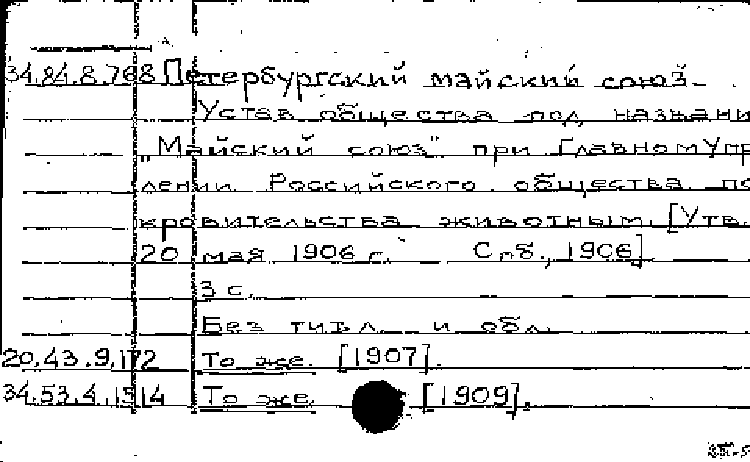 34.84.8.768 Петербургский майский союз.
Устав общества под названи
„Майский союз" при Главном Упр
лении Российского общества по
кровительства животным. [Утв.
20 мая 1906 г. Спб., 1906]
3 с.
Без тит. л. и обл.
20.43.9.172 То же. [1907].
34.53.4.1514 То же. [1909].